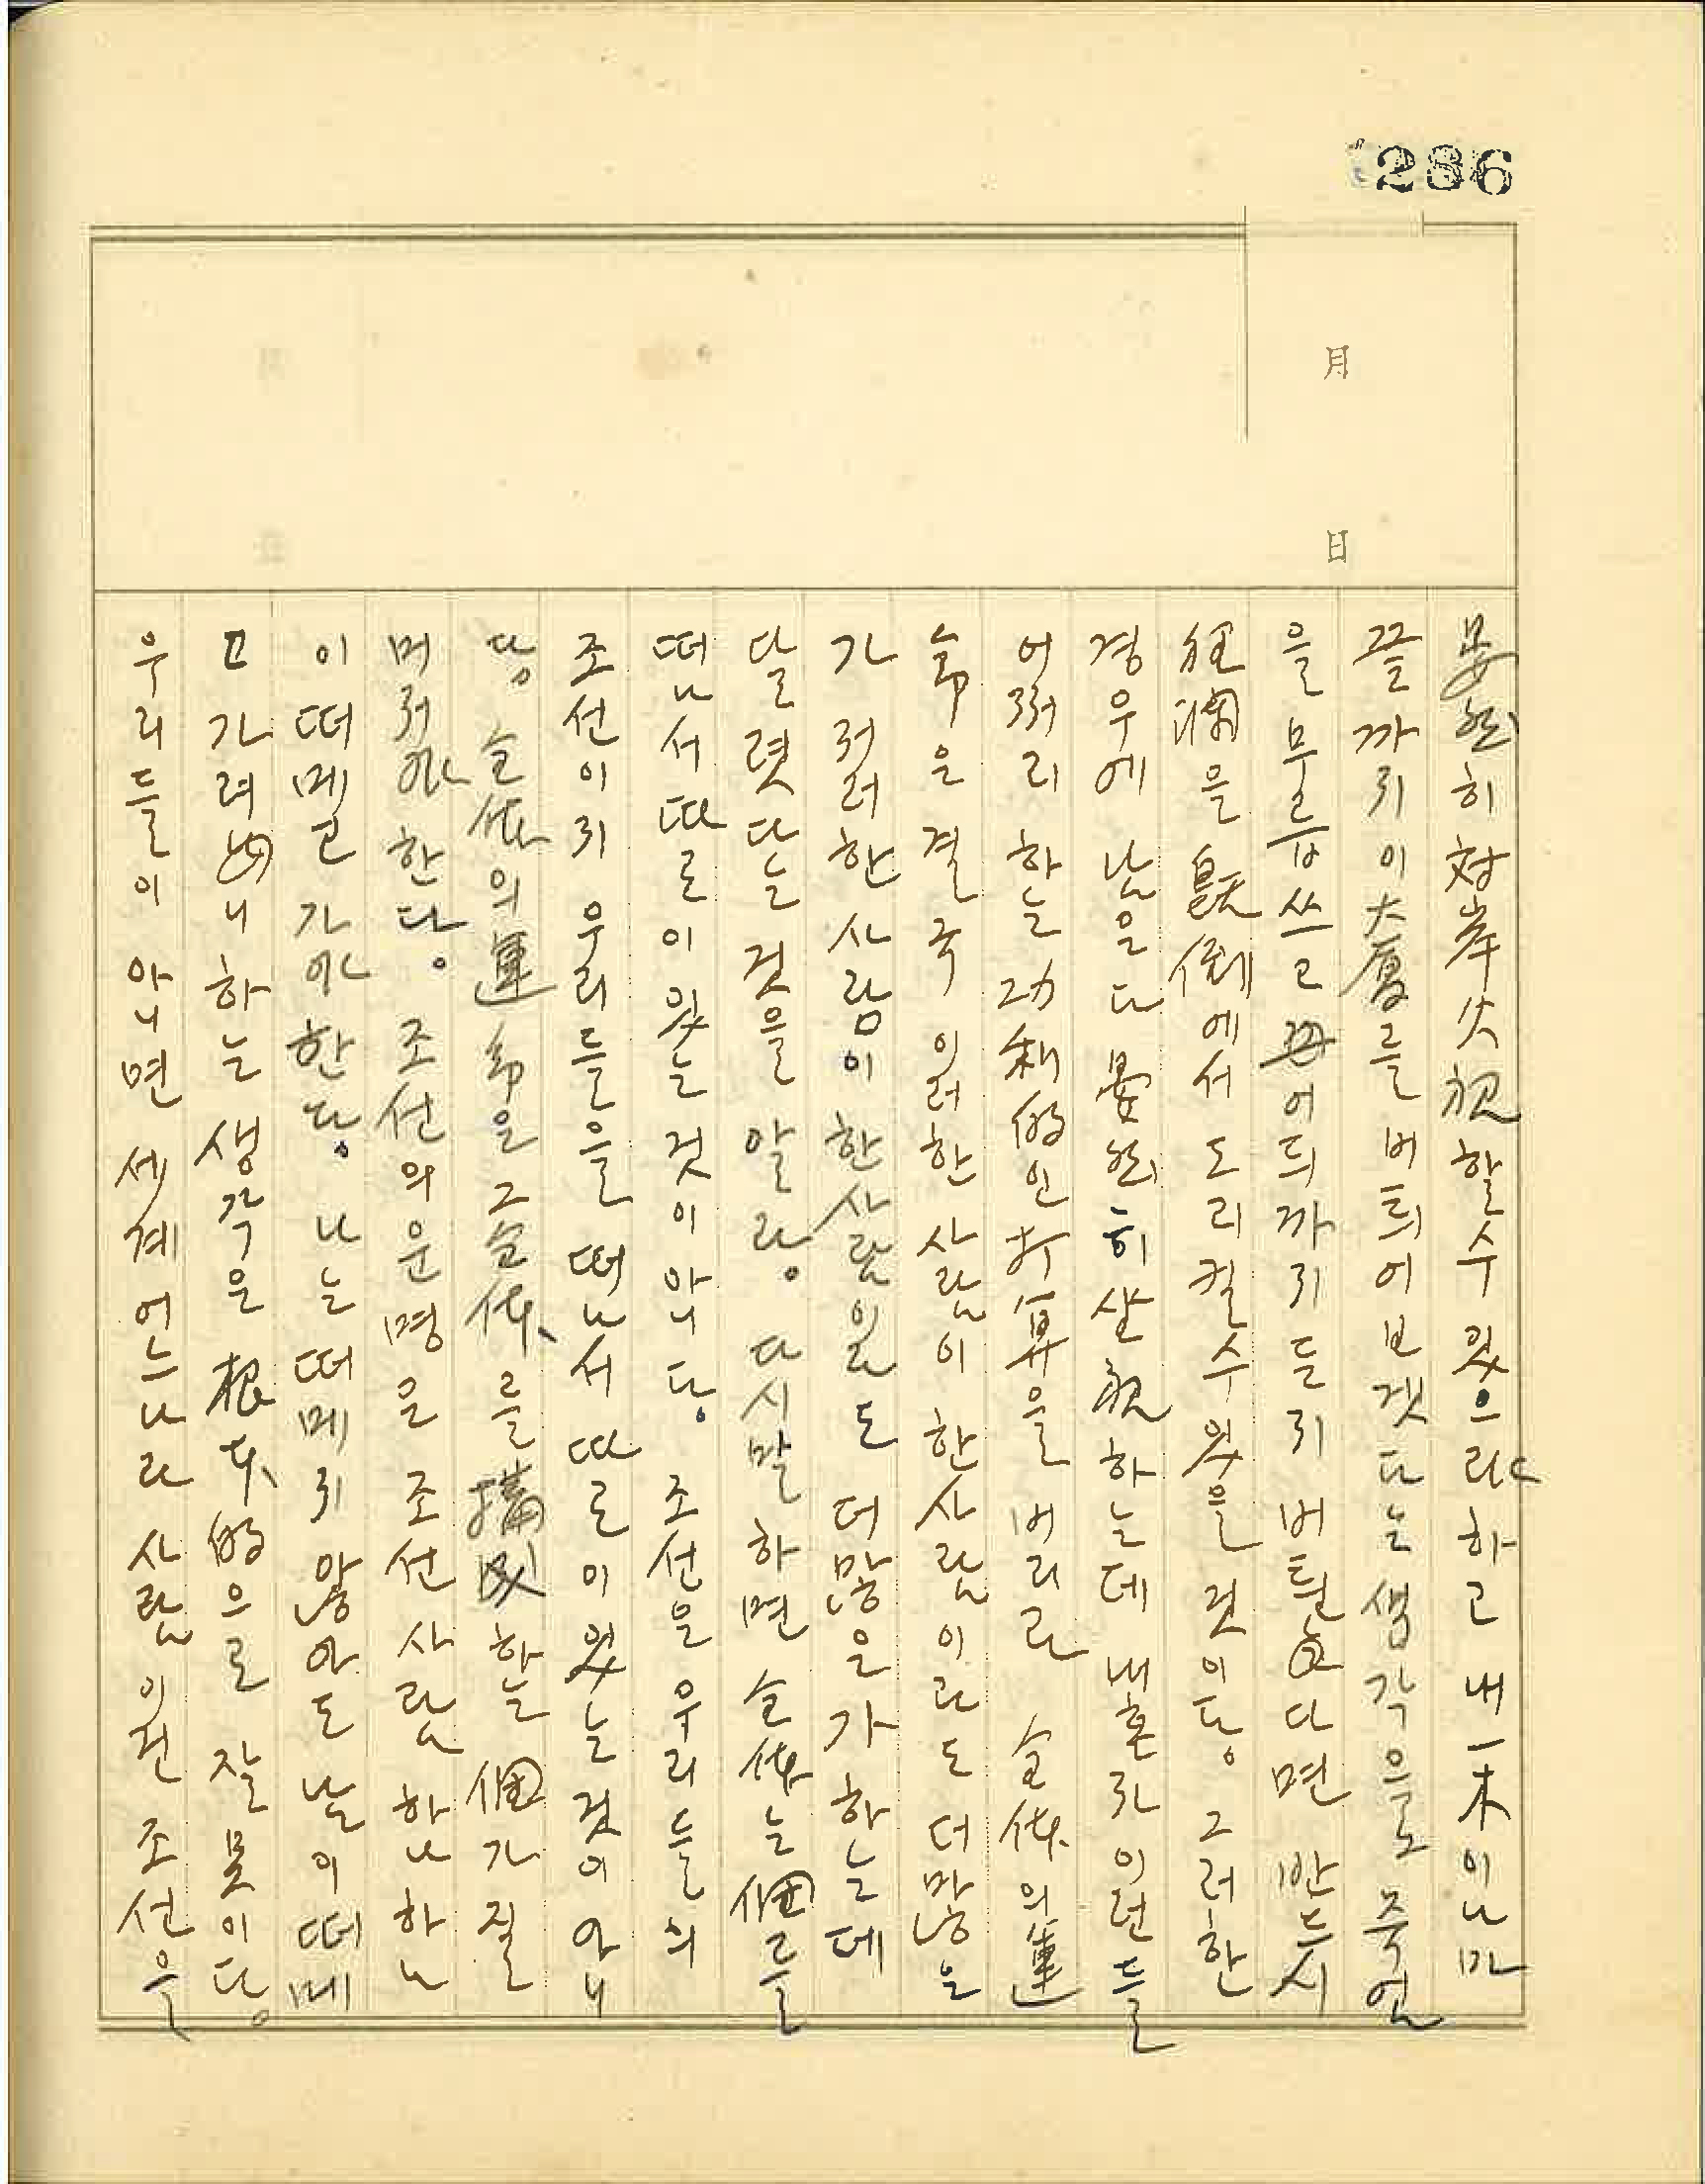 286
月
日
晏然히 対岸火視할수 있으랴 하고 내 一木이나마
끝까지 이 大厦를 버틔어 보겟다는 생각으로 죽엄
을 무릅쓰고 어듸까지든지 버틘다면 반드시
狂瀾을 旣倒에서 도리킬수 있을 것이다。 그러한
경우에 남은 다 晏然히 坐視하는데 내 혼자 이런들
어쩌리 하는 功利的인 打算을 버리라 全体의 運
命을 결국 이러한 사람이 한사람이라도 더 많은
가 저러한 사람이 한사람일도 더 많은가 하는데
달렷다는 것을 알라。 다시 말하면 全体는 個를
떠나서 따로이 있는 것이 아니다。 조선은 우리들의
조선이지 우리들을 떠나서 따로이 있는 것이 아니
다。 全体의 運命은 그 全体를 搆成하는 個가 질
머저야 한다。 조선의 운명은 조선사람 하나하나
이 떠메고 가야 한다。 나는 떠메지 않아도 남이 떠메
고 가려니 하는 생각은 根本的으로 잘못이다。
우리들이 아니면 세계 어느나라 사람이건 조선은